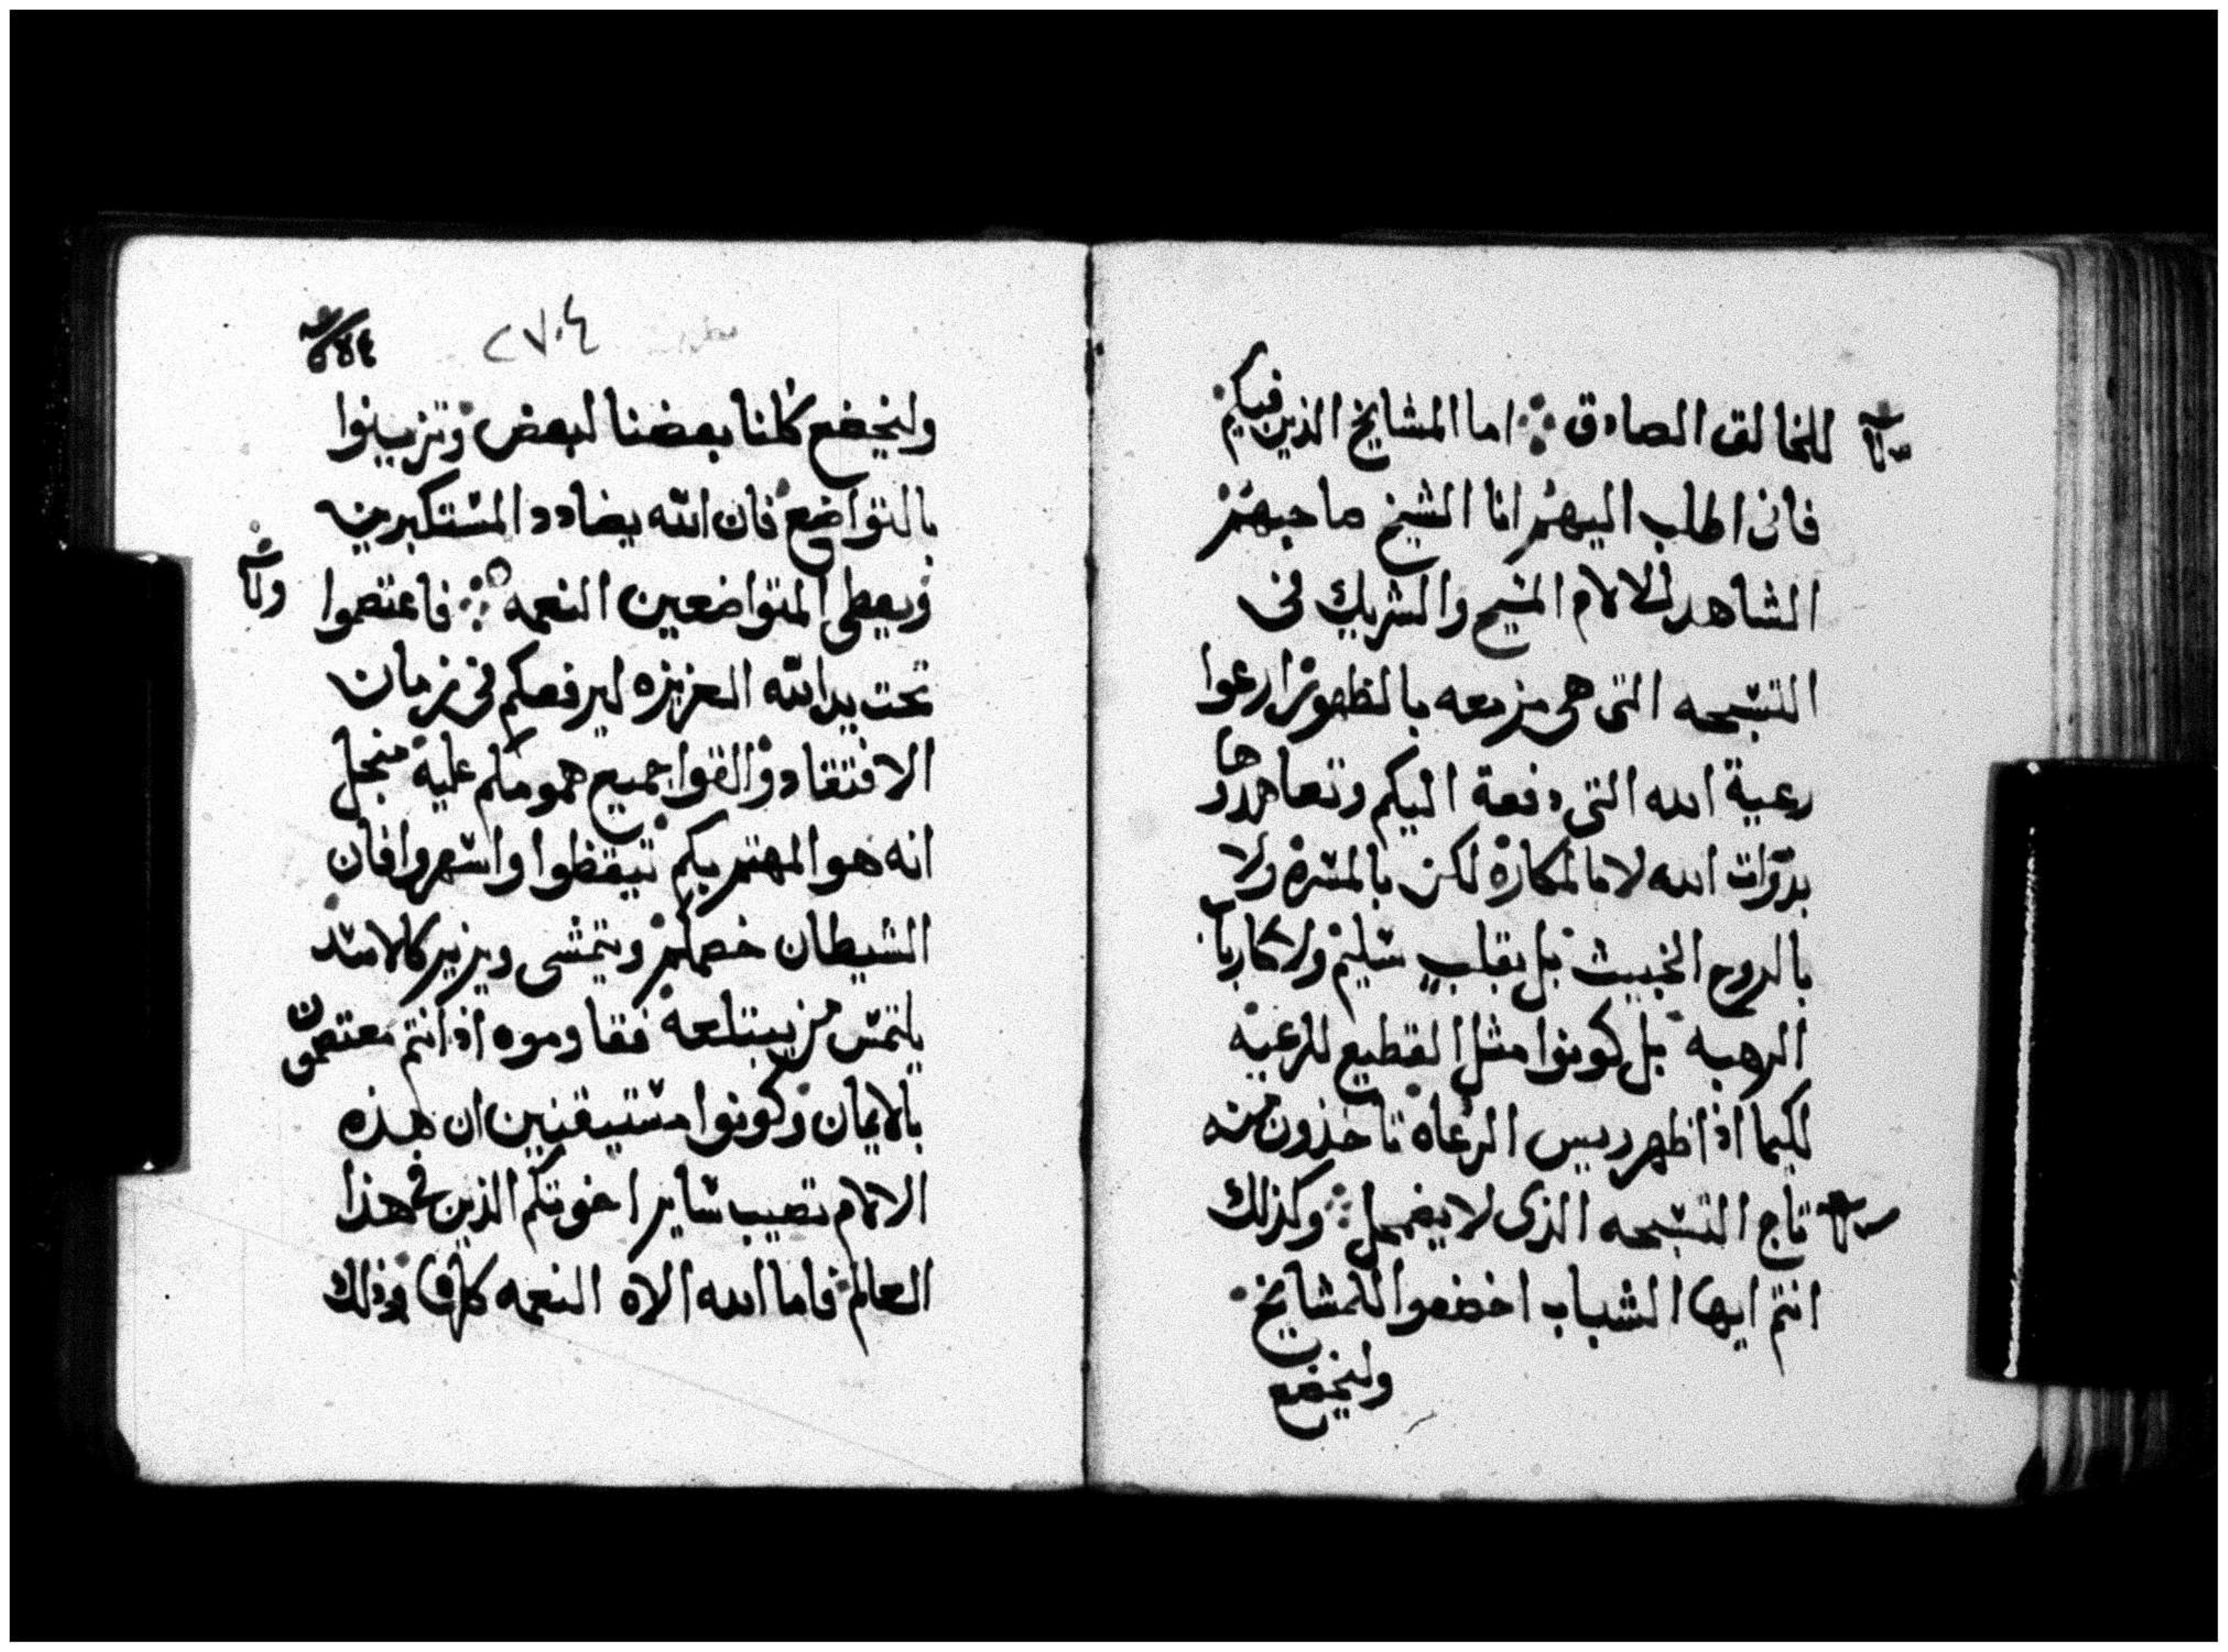 للخالق الصادق ܀ اما المشايخ الذين فيكم
فانى اطلب اليهم انا الشيخ صاحبهم
الشاهد للالام المسيح والشريك فى
التسبحه التى هى مزمعه بالظهور ارعوا
رعية الله التى دفعة اليكم وتعاهدوها
بذوات الله لا بالمكاره لكن بالمسره ولا
بالروح الخبيث بل بقلب سليم ولا كارباب
الرهبه بل كونوا مثل القطيع للرعيه
لكيما اذا ظهر ريس الرعاه تاخذون منه
تاج التسبحه الذى لا يضمحل ܀ وكذلك
انتم ايها الشباب اخضعوا للمشايخ
وليخضع
٢٧٠٤
وليخضع كلنا بعضنا لبعض وتزينوا
بالتواضع فان الله يضادد المستكبرين
ويعطى المتواضعين النعمه ܀ فاعتصموا
تحت يد الله العزيزه ليرفعكم فى زمان
الافتقاد والقوا جميع همومكم عليه منجل
انه هو المهتم بكم تيقظوا واسهروا فان
الشيطان خصمكم ويتمشى ويزير كالاسد
يلتمس من يبتلعه فقاوموه اذ انتم معتصمون
بالايمان وكونوا مستيقنين ان هذه
الالام تصيب ساير اخوتكم الذين فى هذا
العالم فاما الله الاه النعمه كلها وذلك